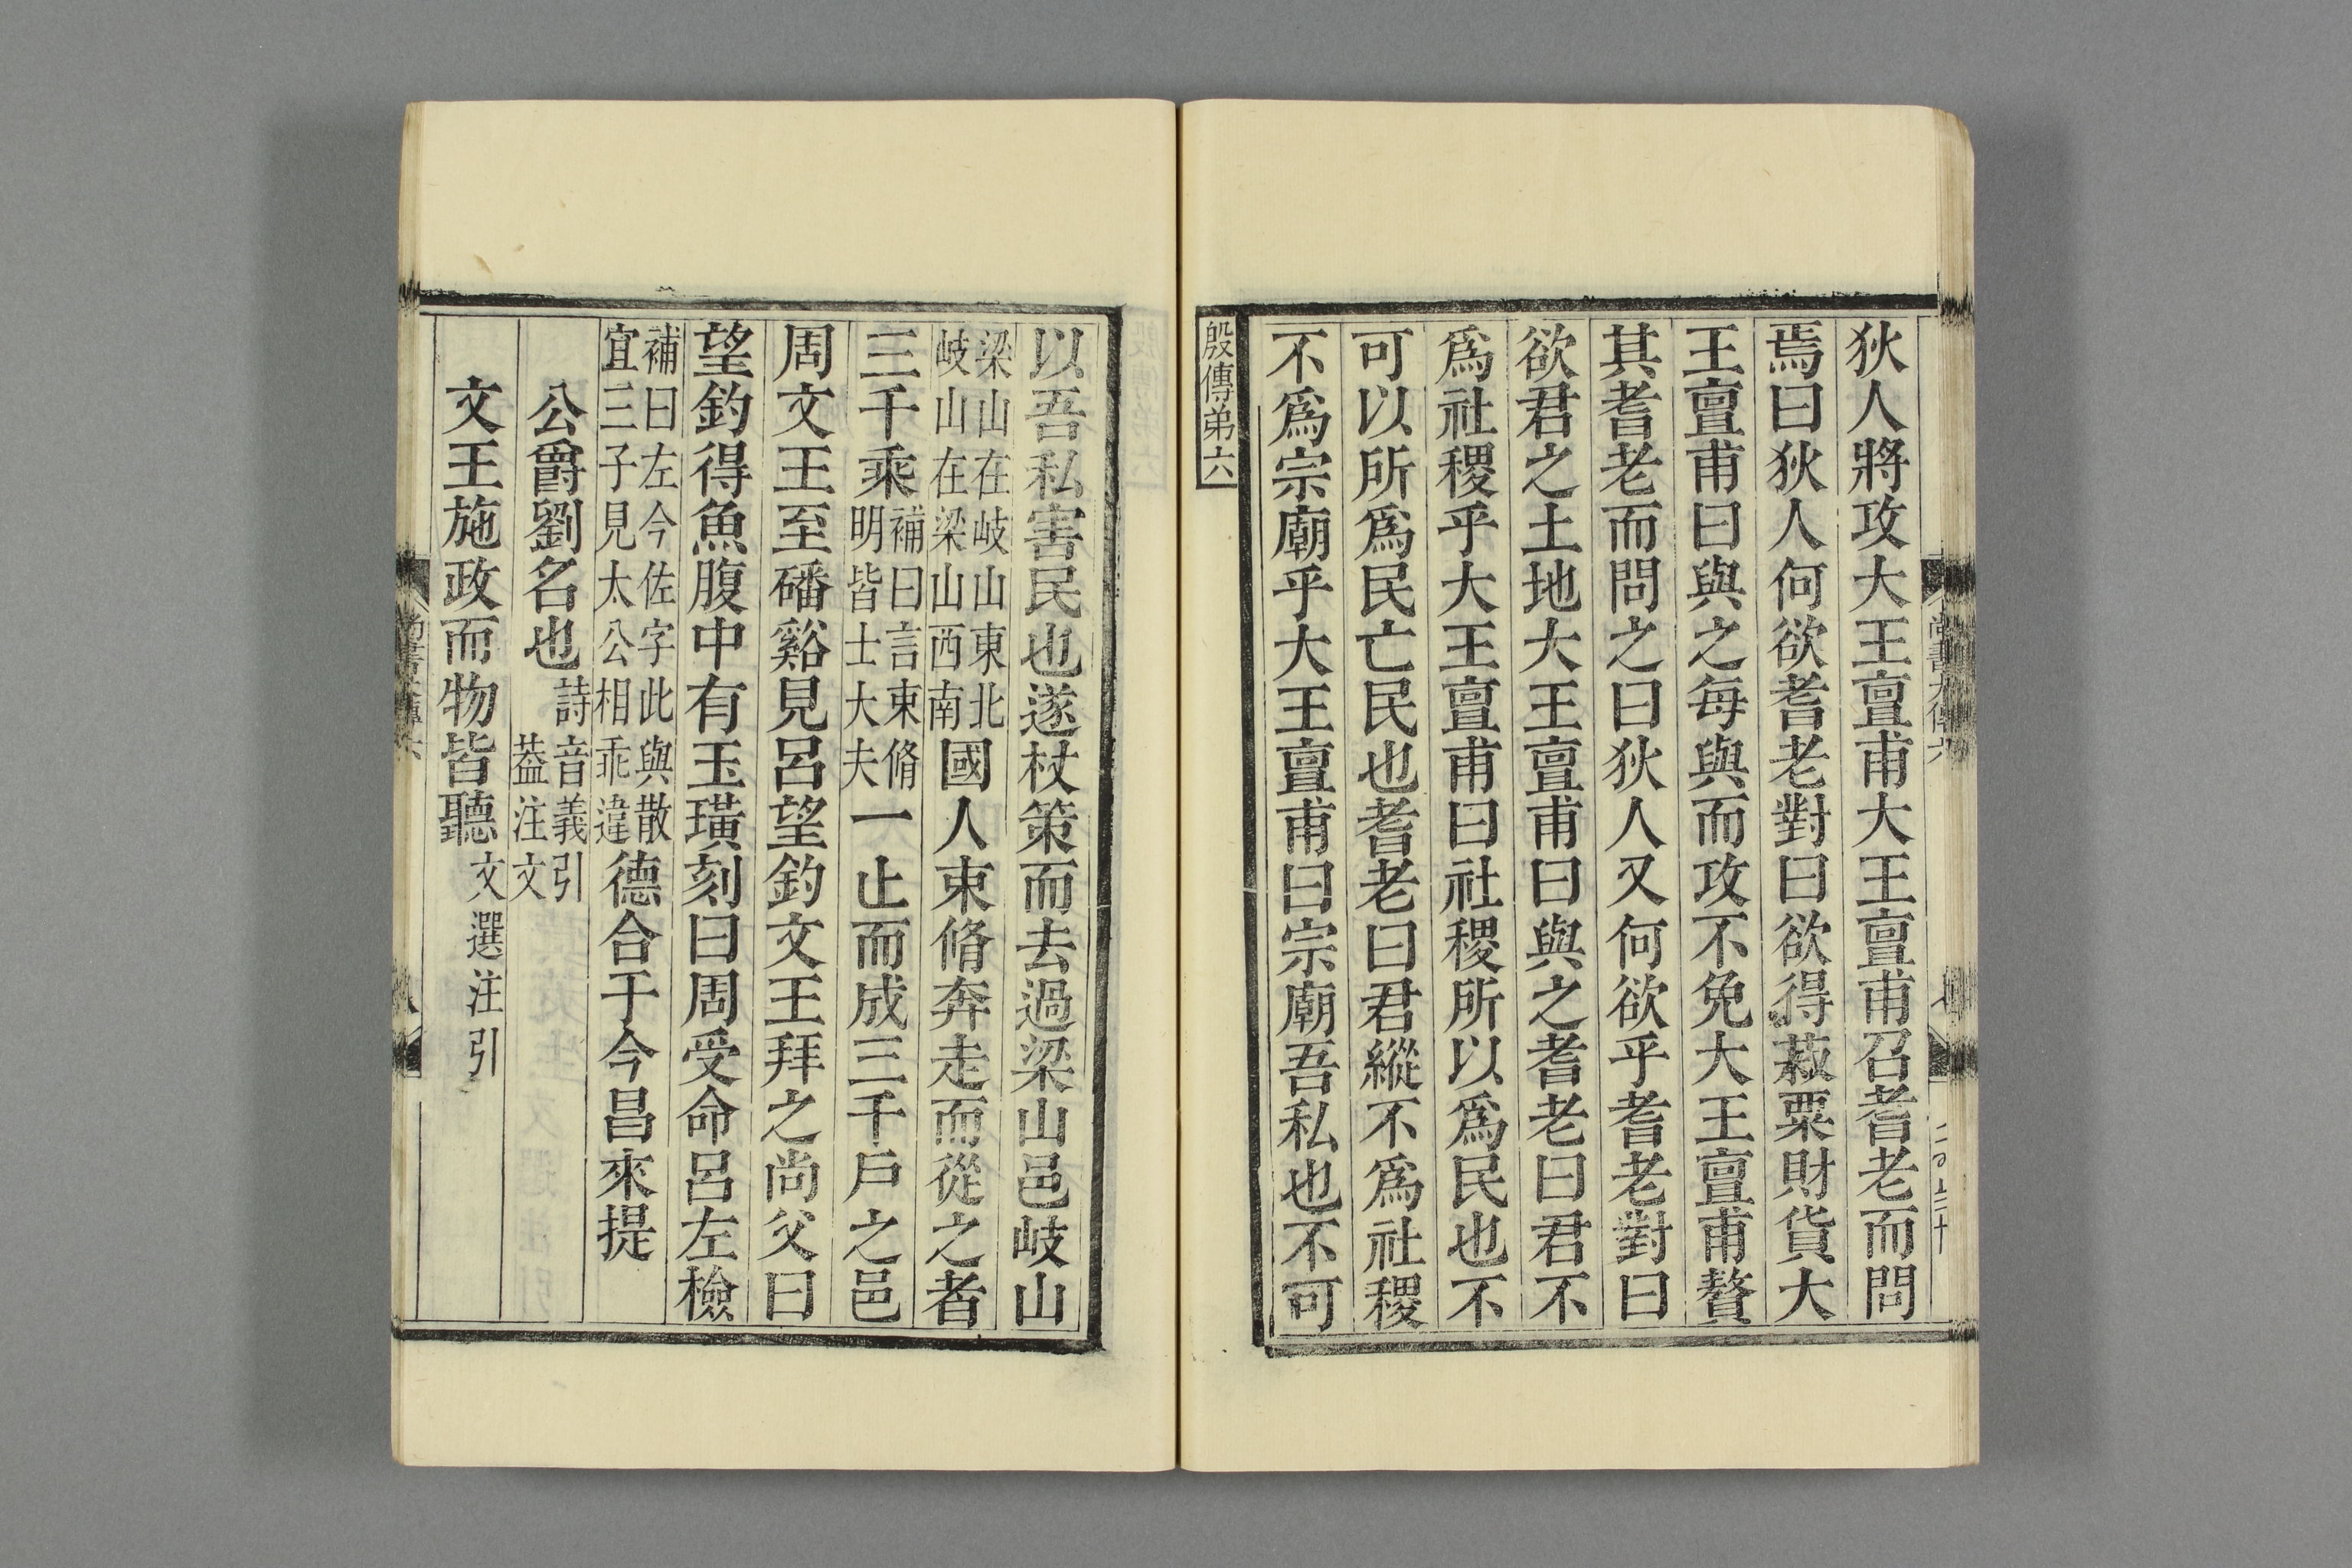 狄人將攻大王亶甫大王亶甫召耆老而問
焉曰狄人何欲耆老對曰欲得菽粟財貨大
王亶甫曰與之每與而攻不免大王亶甫贅
其耆老而問之曰狄人又何欲乎耆老對曰
欲君之土地大王亶甫曰與之耆老曰君不
爲社稷乎大王亶甫曰社稷所以爲民也不
可以所爲民亡民也耆老曰君縱不爲社稷
不爲宗廟乎大王亶甫曰宗廟吾私也不可
殷傳弟六
以吾私害民也遂杖策而去過梁山邑岐山
梁山在岐山東北
岐山在梁山西南
國人束脩奔走而從之者
三千乘
補曰言束脩
明皆士大夫
一止而成三千戶之邑
周文王至磻谿見呂望釣文王拜之尚父曰
望釣得魚腹中有玉璜刻曰周受命呂左檢
補曰左今佐字此與散
宜三子見太公相乖違
德合于今昌來提
公爵劉名也
詩音義引
葢注文
文王施政而物皆聽
文選注引